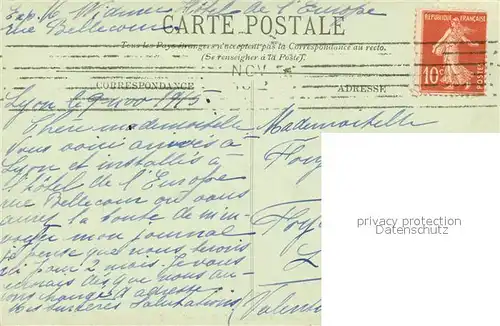 Exp. le Hôtel de l'Europe
rue Bellecour
CARTE POSTALE
Tous les Pays étrangers n'acceptent pas la Correspondance au recto.
(Se renseigner à la Poste).
REPUBLIQUE FRANÇAISE
10c
POSTES
NOV
CORRESPONDANCE
ADRESSE
Lyon le 9 nov 1915.
Chere mademoiselle
Mademoiselle
Vous voici arrivés à
Lyon et installés à
l'hôtel de l'Europe
rue Bellecour où vous
aurez la bonté de m'en
mon journal
je pense que nous serons
ici pour 2 mois. Je vous
dès que nous
changés d'adresse.
Salutations
Valentin
privacy protection
Datenschutz